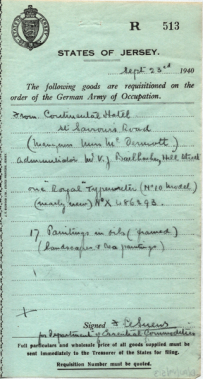 R 513
STATES OF JERSEY.
Sept 23rd 1940
The following goods are requisitioned on the
order of the German Army of Occupation.
From Continental Hotel
St Saviours Road
(Manageress Mrs Mc Dermott)
administrator Mr V. J. Bailhache, Hill Street
one "Royal" Typewriter (No 10 model)
(nearly new) No X
17 Paintings in oils (framed)
(landscapes & sea paintings)
Signed
for Department of Essential Commodities
Full particulars and wholesale price of all goods supplied must be
sent immediately to the Treasurer of the States for filing.
Requisition Number must be quoted.